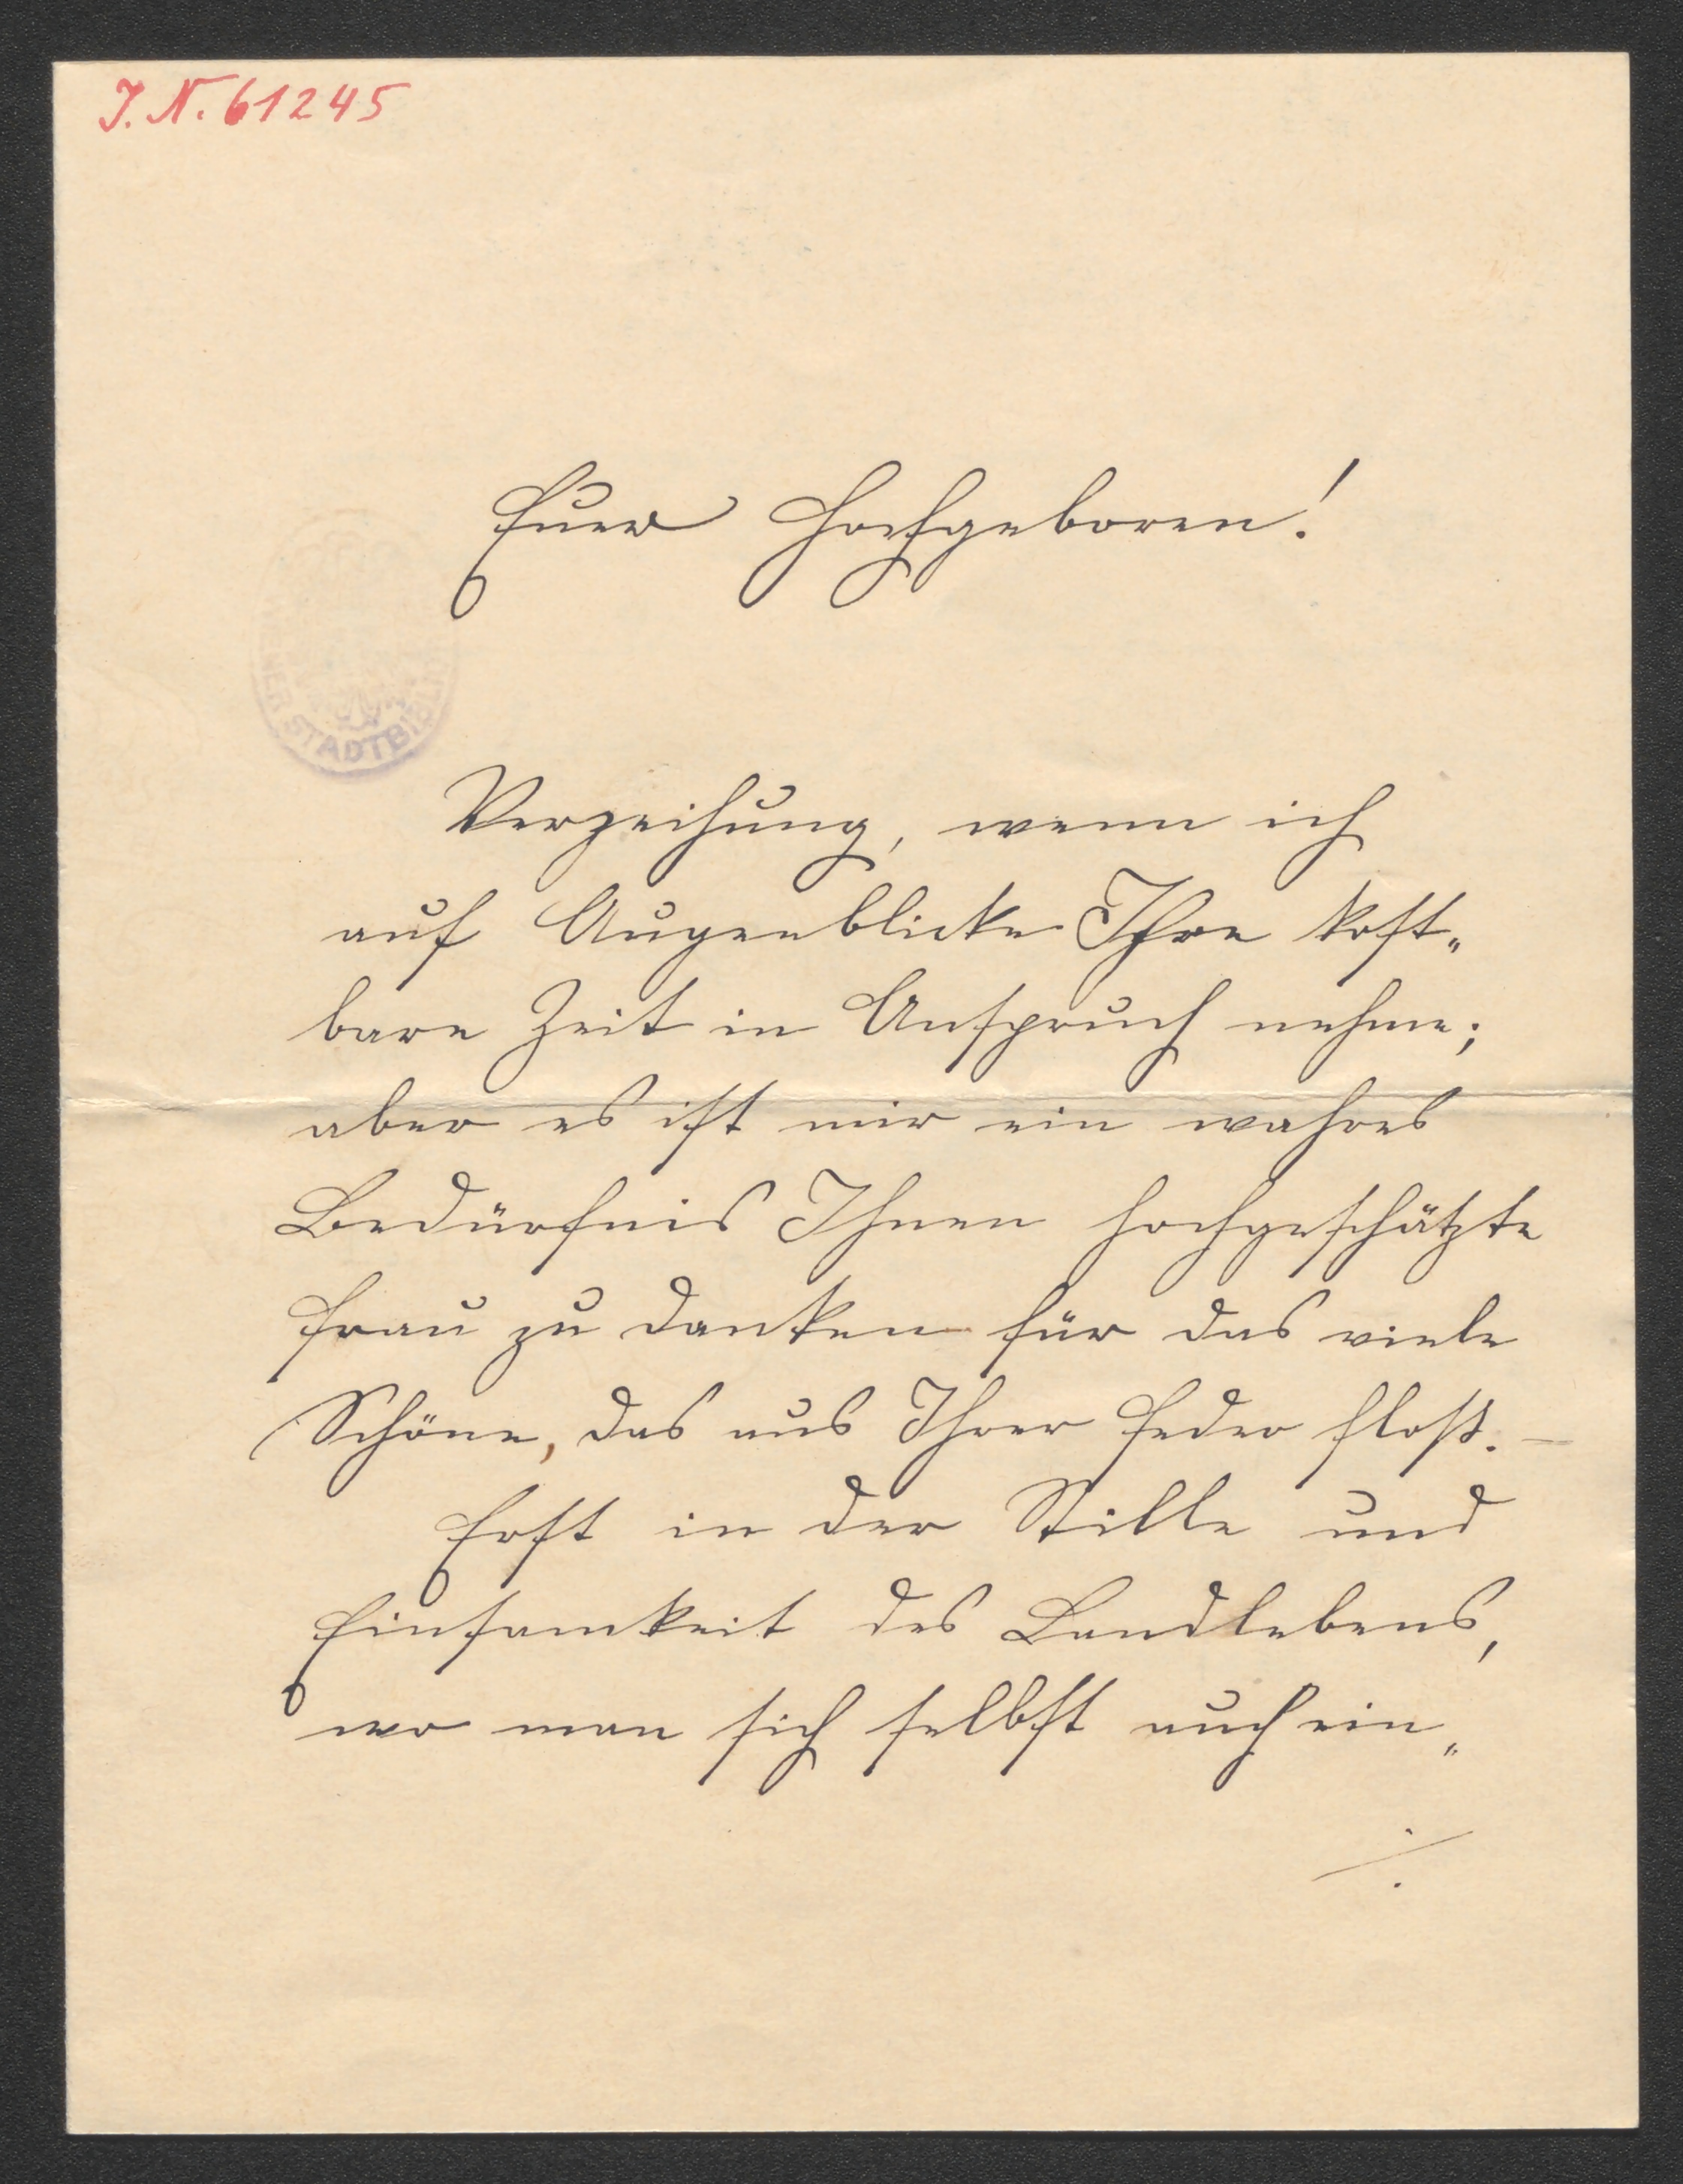 J. N. 61245
Euer Hochgeboren!
Verzeihung, wenn ich
auf Augenblicke Ihre kost„
bare Zeit in Anspruch nehme;
aber es ist mir ein wahres
Bedürfnis Ihnen hochgeschätzte
Frau zu danken für das viele
Schöne, das aus Ihrer Feder floß. —
Erst in der Stille und
Einsamkeit des Landlebens,
wo man sich selbst auch ein„
./.
STADTBI